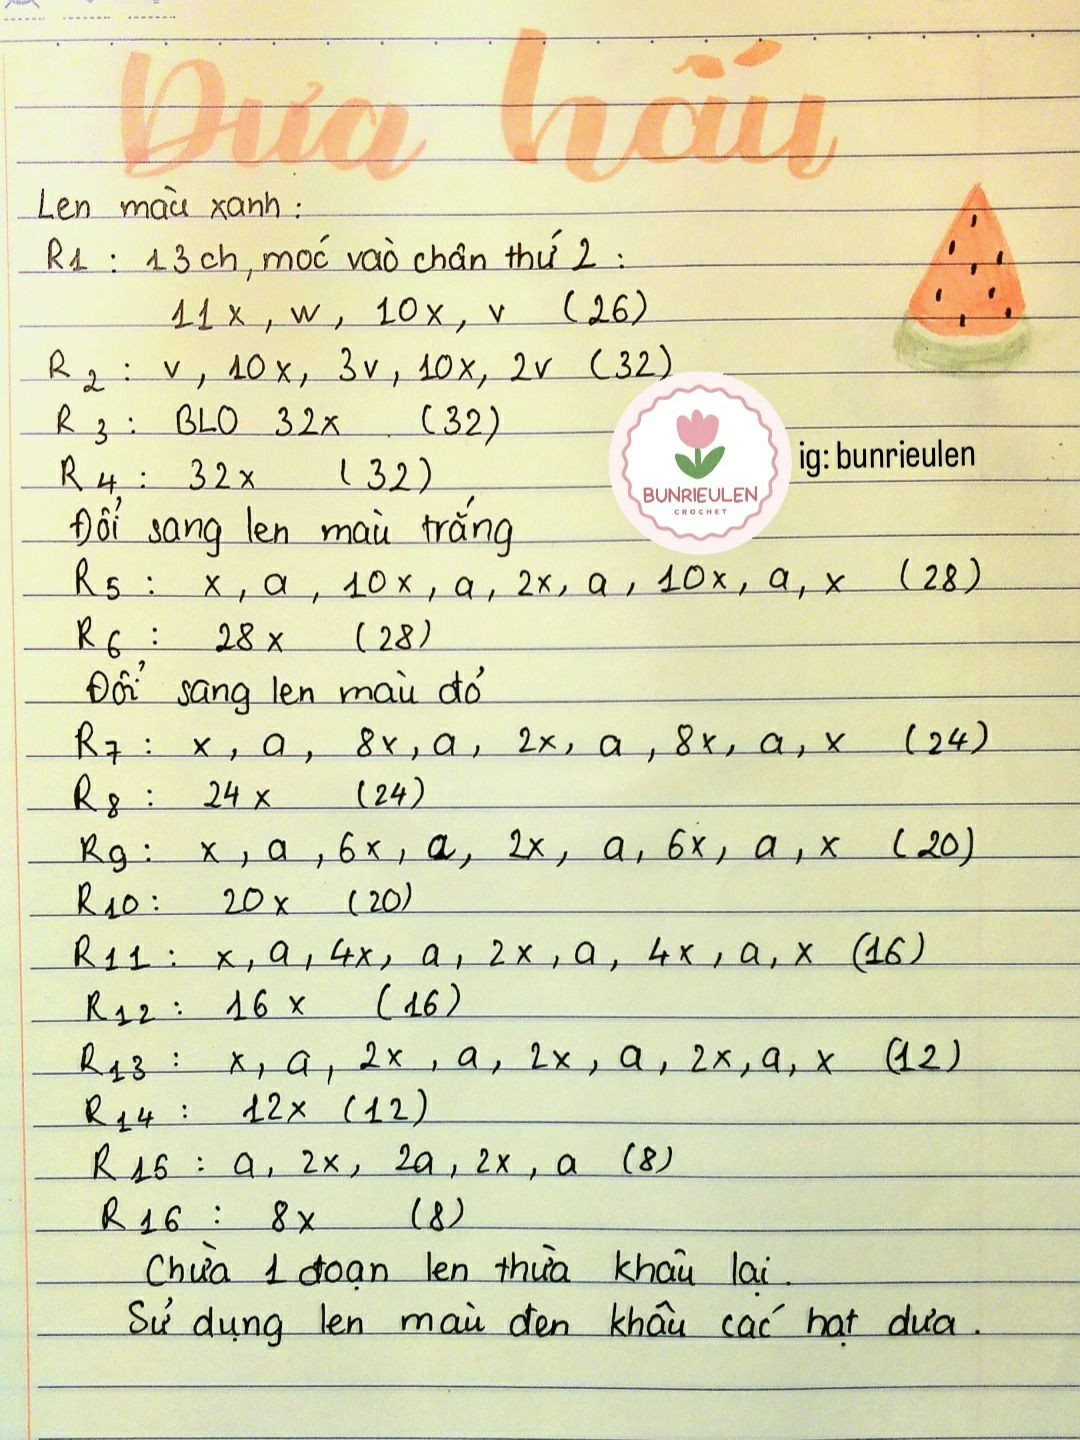 Dưa hấu
Len màu xanh :
R1 : 13 ch, móc vào chân thứ 2 :
11x , w , 10x , v (26)
R2 : v , 10x , 3v , 10x , 2v (32)
R3 : BLO 32x (32)
R4 : 32x (32)
ig: bunrieulen
BUNRIEULEN
CROCHET
Đổi sang len màu trắng
R5 : x , a , 10x , a , 2x , a , 10x , a , x (28)
R6 : 28x (28)
Đổi sang len màu đỏ
R7 : x , a , 8x , a , 2x , a , 8x , a , x (24)
R8 : 24x (24)
R9 : x , a , 6x , a , 2x , a , 6x , a , x (20)
R10 : 20x (20)
R11 : x , a , 4x , a , 2x , a , 4x , a , x (16)
R12 : 16x (16)
R13 : x , a , 2x , a , 2x , a , 2x , a , x (12)
R14 : 12x (12)
R15 : a , 2x , 2a , 2x , a (8)
R16 : 8x (8)
Chừa 1 đoạn len thừa khâu lại .
Sử dụng len màu đen khâu các hạt dưa .